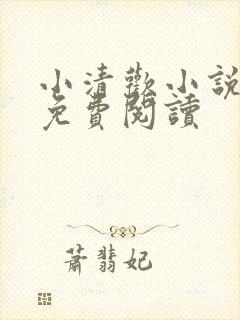 小清歡小說
免費閱讀
蕭翡妃